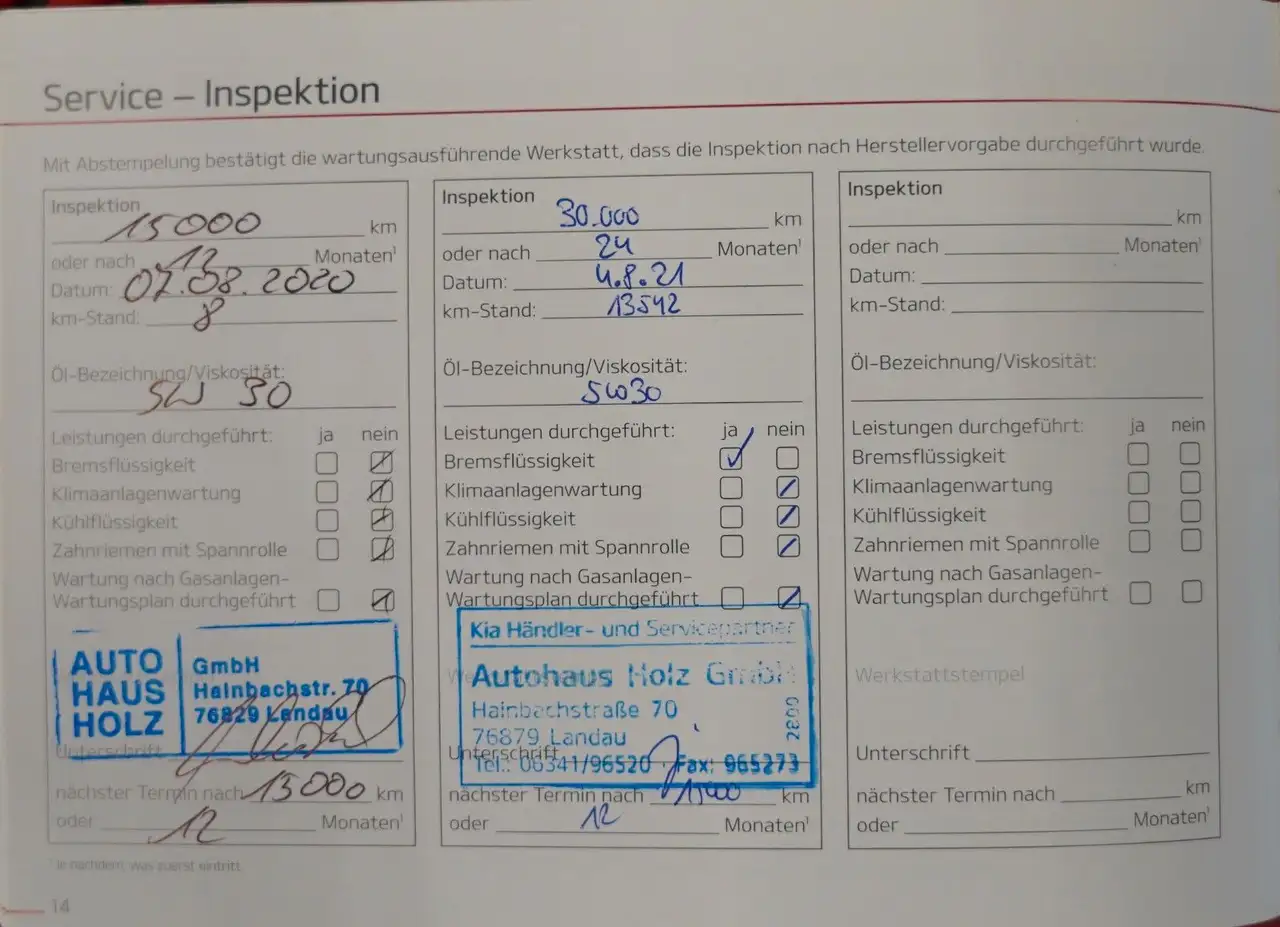 Service – Inspektion
Mit Abstempelung bestätigt die wartungsausführende Werkstatt, dass die Inspektion nach Herstellervorgabe durchgeführt wurde.
Inspektion 15000 km
oder nach 12 Monaten¹
Datum: 07.08.2020
km-Stand: 8
Öl-Bezeichnung/Viskosität:
5W 30
Leistungen durchgeführt: ja nein
Bremsflüssigkeit
Klimaanlagenwartung
Kühlflüssigkeit
Zahnriemen mit Spannrolle
Wartung nach Gasanlagen-
Wartungsplan durchgeführt
AUTO HAUS HOLZ
GmbH
Hainbachstr. 70
76829 Landau
Unterschrift
nächster Termin nach 15000 km
oder 12 Monaten¹
Inspektion 30.000 km
oder nach 24 Monaten¹
Datum: 4.8.21
km-Stand: 13542
Öl-Bezeichnung/Viskosität:
5W30
Leistungen durchgeführt: ja nein
Bremsflüssigkeit
Klimaanlagenwartung
Kühlflüssigkeit
Zahnriemen mit Spannrolle
Wartung nach Gasanlagen-
Wartungsplan durchgeführt
Kia Händler- und Servicepartner
Autohaus Holz GmbH
Hainbachstraße 70
76879 Landau
Tel.: 06341/96520 Fax: 965273
Unterschrift
nächster Termin nach km
oder 12 Monaten¹
Inspektion
km
oder nach Monaten¹
Datum:
km-Stand:
Öl-Bezeichnung/Viskosität:
Leistungen durchgeführt: ja nein
Bremsflüssigkeit
Klimaanlagenwartung
Kühlflüssigkeit
Zahnriemen mit Spannrolle
Wartung nach Gasanlagen-
Wartungsplan durchgeführt
Werkstattstempel
Unterschrift
nächster Termin nach km
oder Monaten¹
¹ Je nachdem, was zuerst eintritt
14